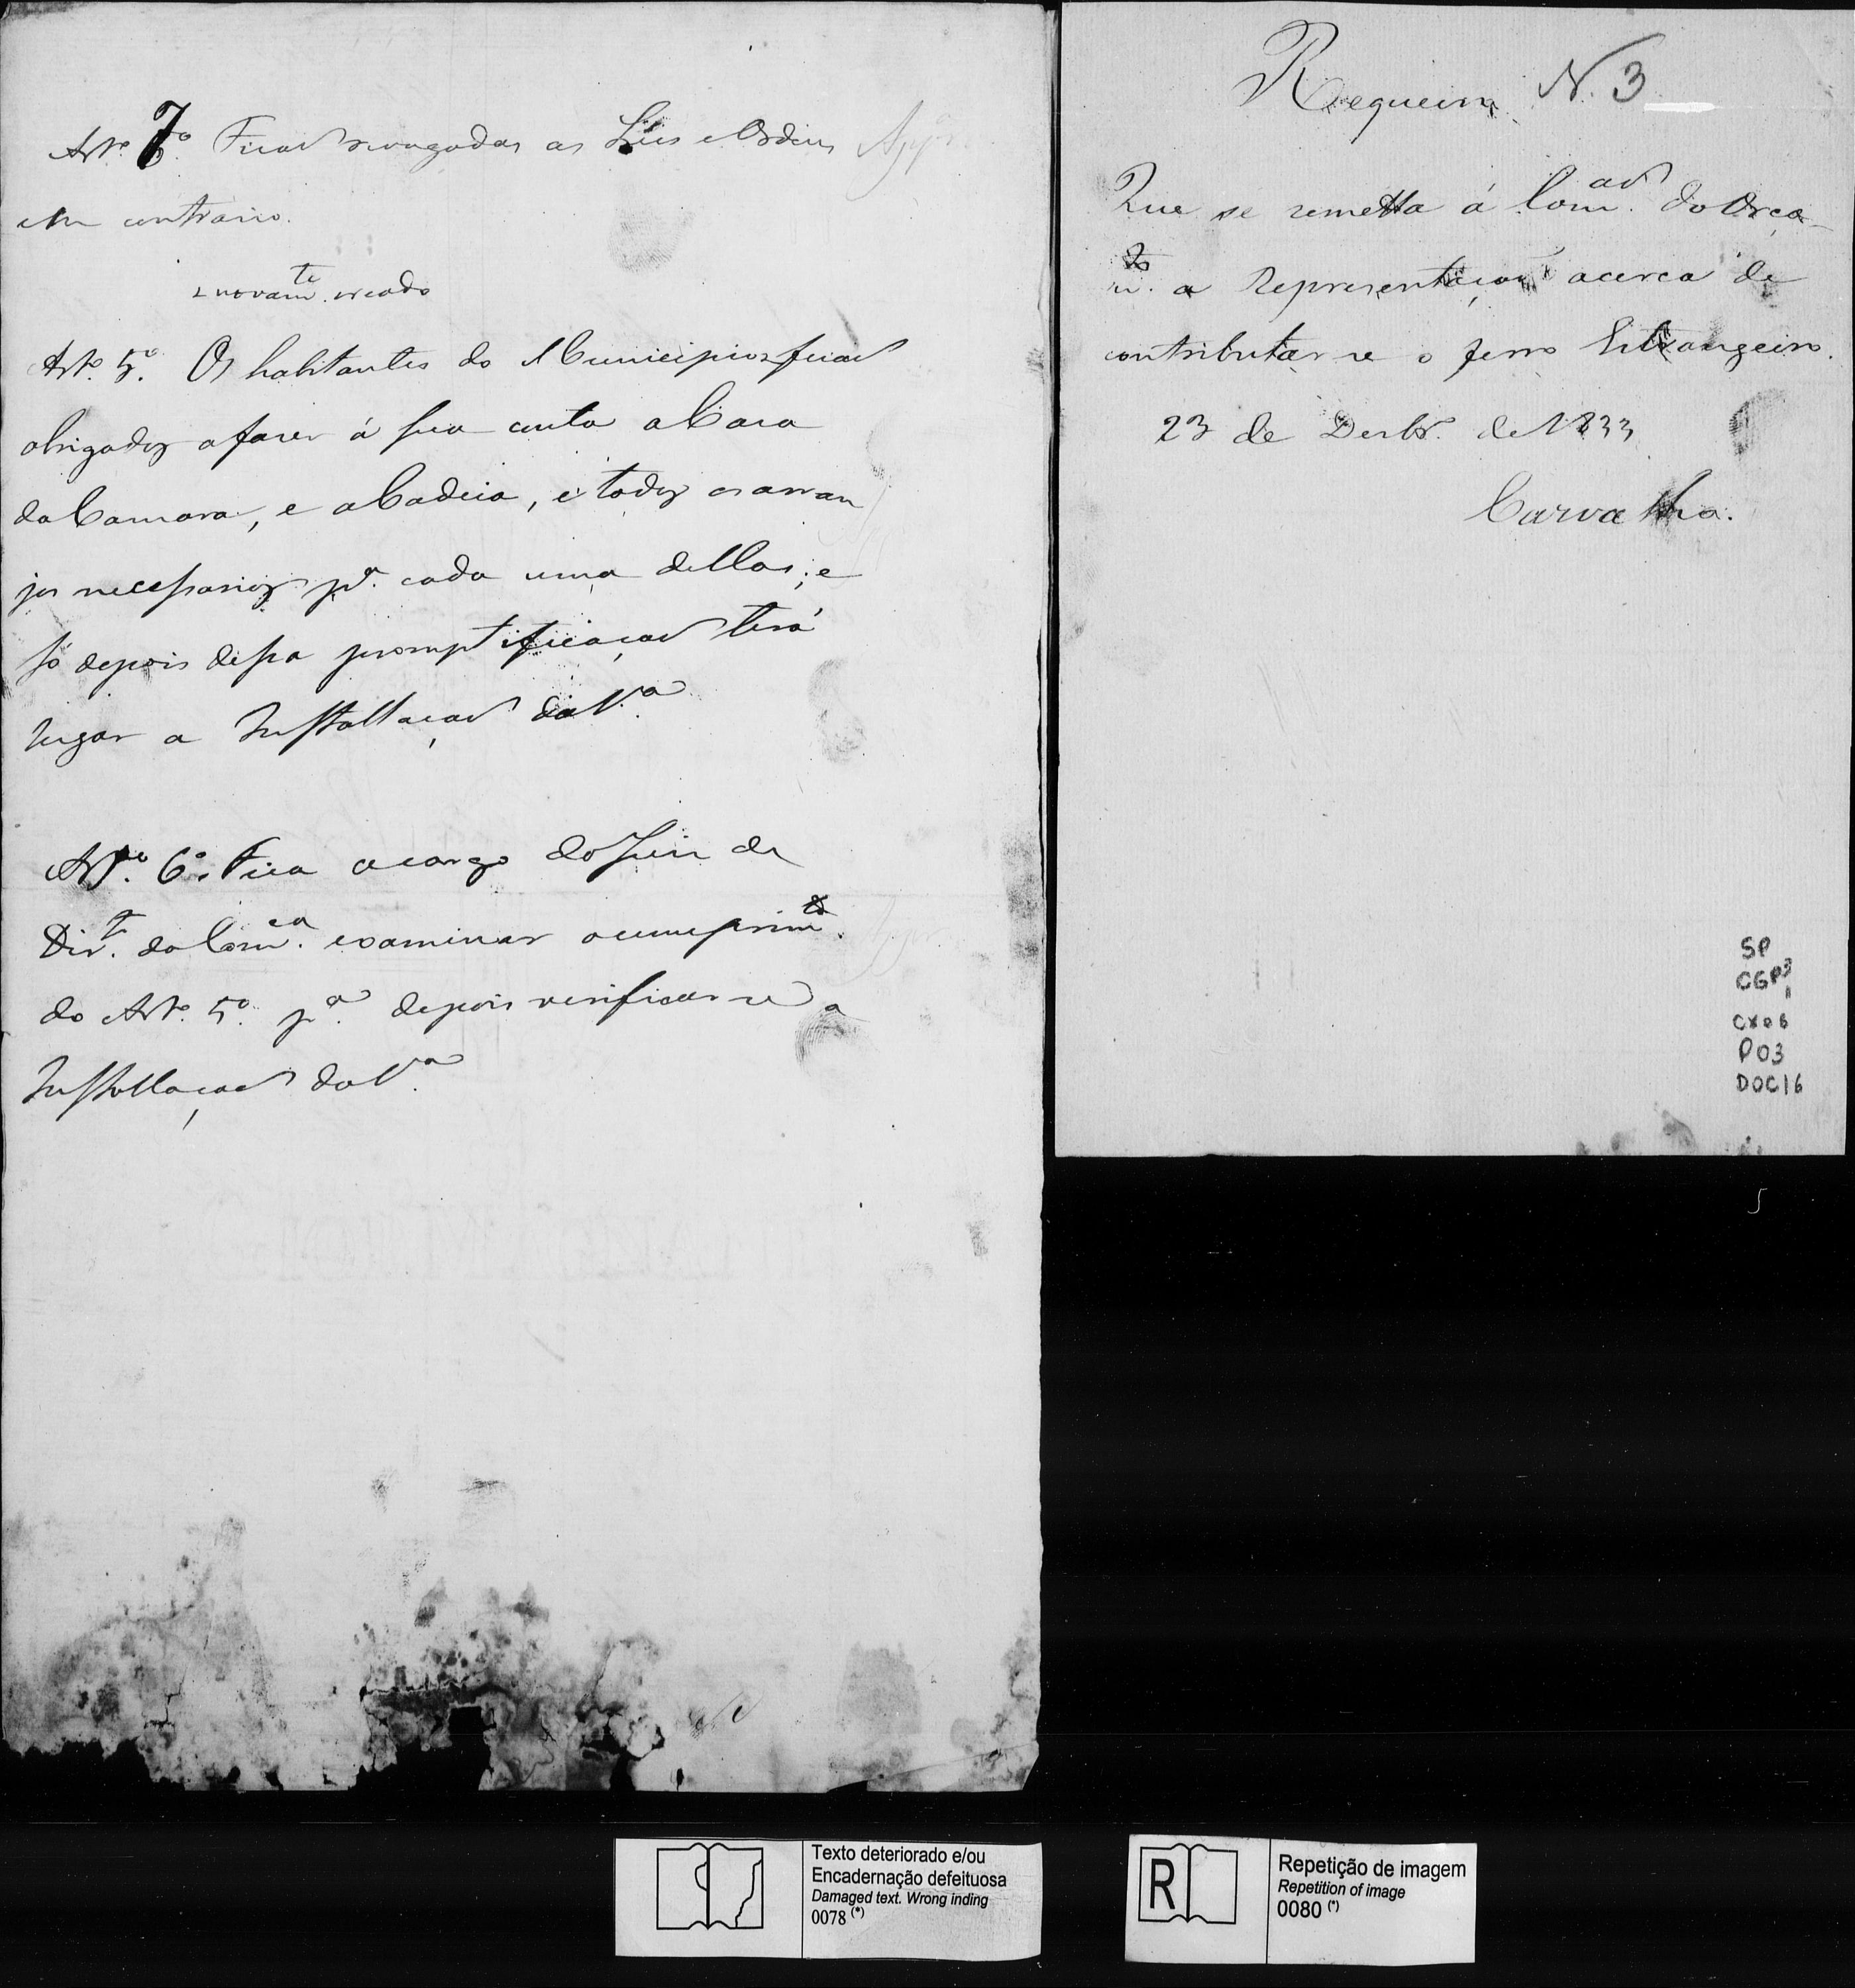 Art.º 7º Ficaõ revogadas as Leis e Ordens App.
em contrario.
novam.te creado
Art.º 5º. Os habitantes do Municipio ficaõ
obrigados a fazer á sua custa a Caza
da Camara, e a Cadeia, e todos os arran
jos necessarios p.ª cada uma dellas; e
só depois dessa promptificaçaõ terá
lugar a Installaçaõ da V.ª
Art.º 6º. Fica a cargo do Juiz de
Dir.to da Com.ca examinar o cumprim.to
do Art.º 5º. p.ª depois verificar-se a
Installaçaõ da V.ª
Requeiro N. 3
Que se remetta á Com.aõ do Orça-
m.to a Representaçaõ acerca de
contributar se o ferro Estrangeiro.
23 de Dezbr. de 1833
Carvalho.
SP
CGP3
CX06
P03
DOC16
5
Texto deteriorado e/ou
Encadernação defeituosa
Damaged text. Wrong inding
0078 (*)
R
Repetição de imagem
Repetition of image
0080 (*)